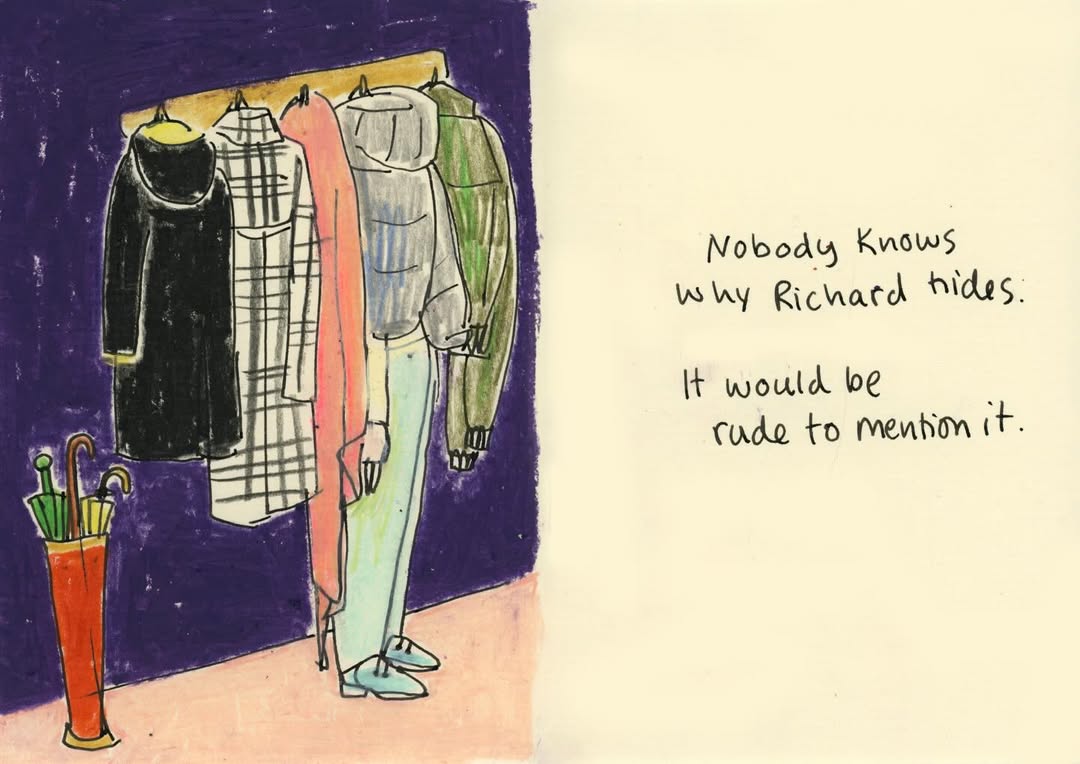 Nobody knows
why Richard hides.
It would be
rude to mention it.